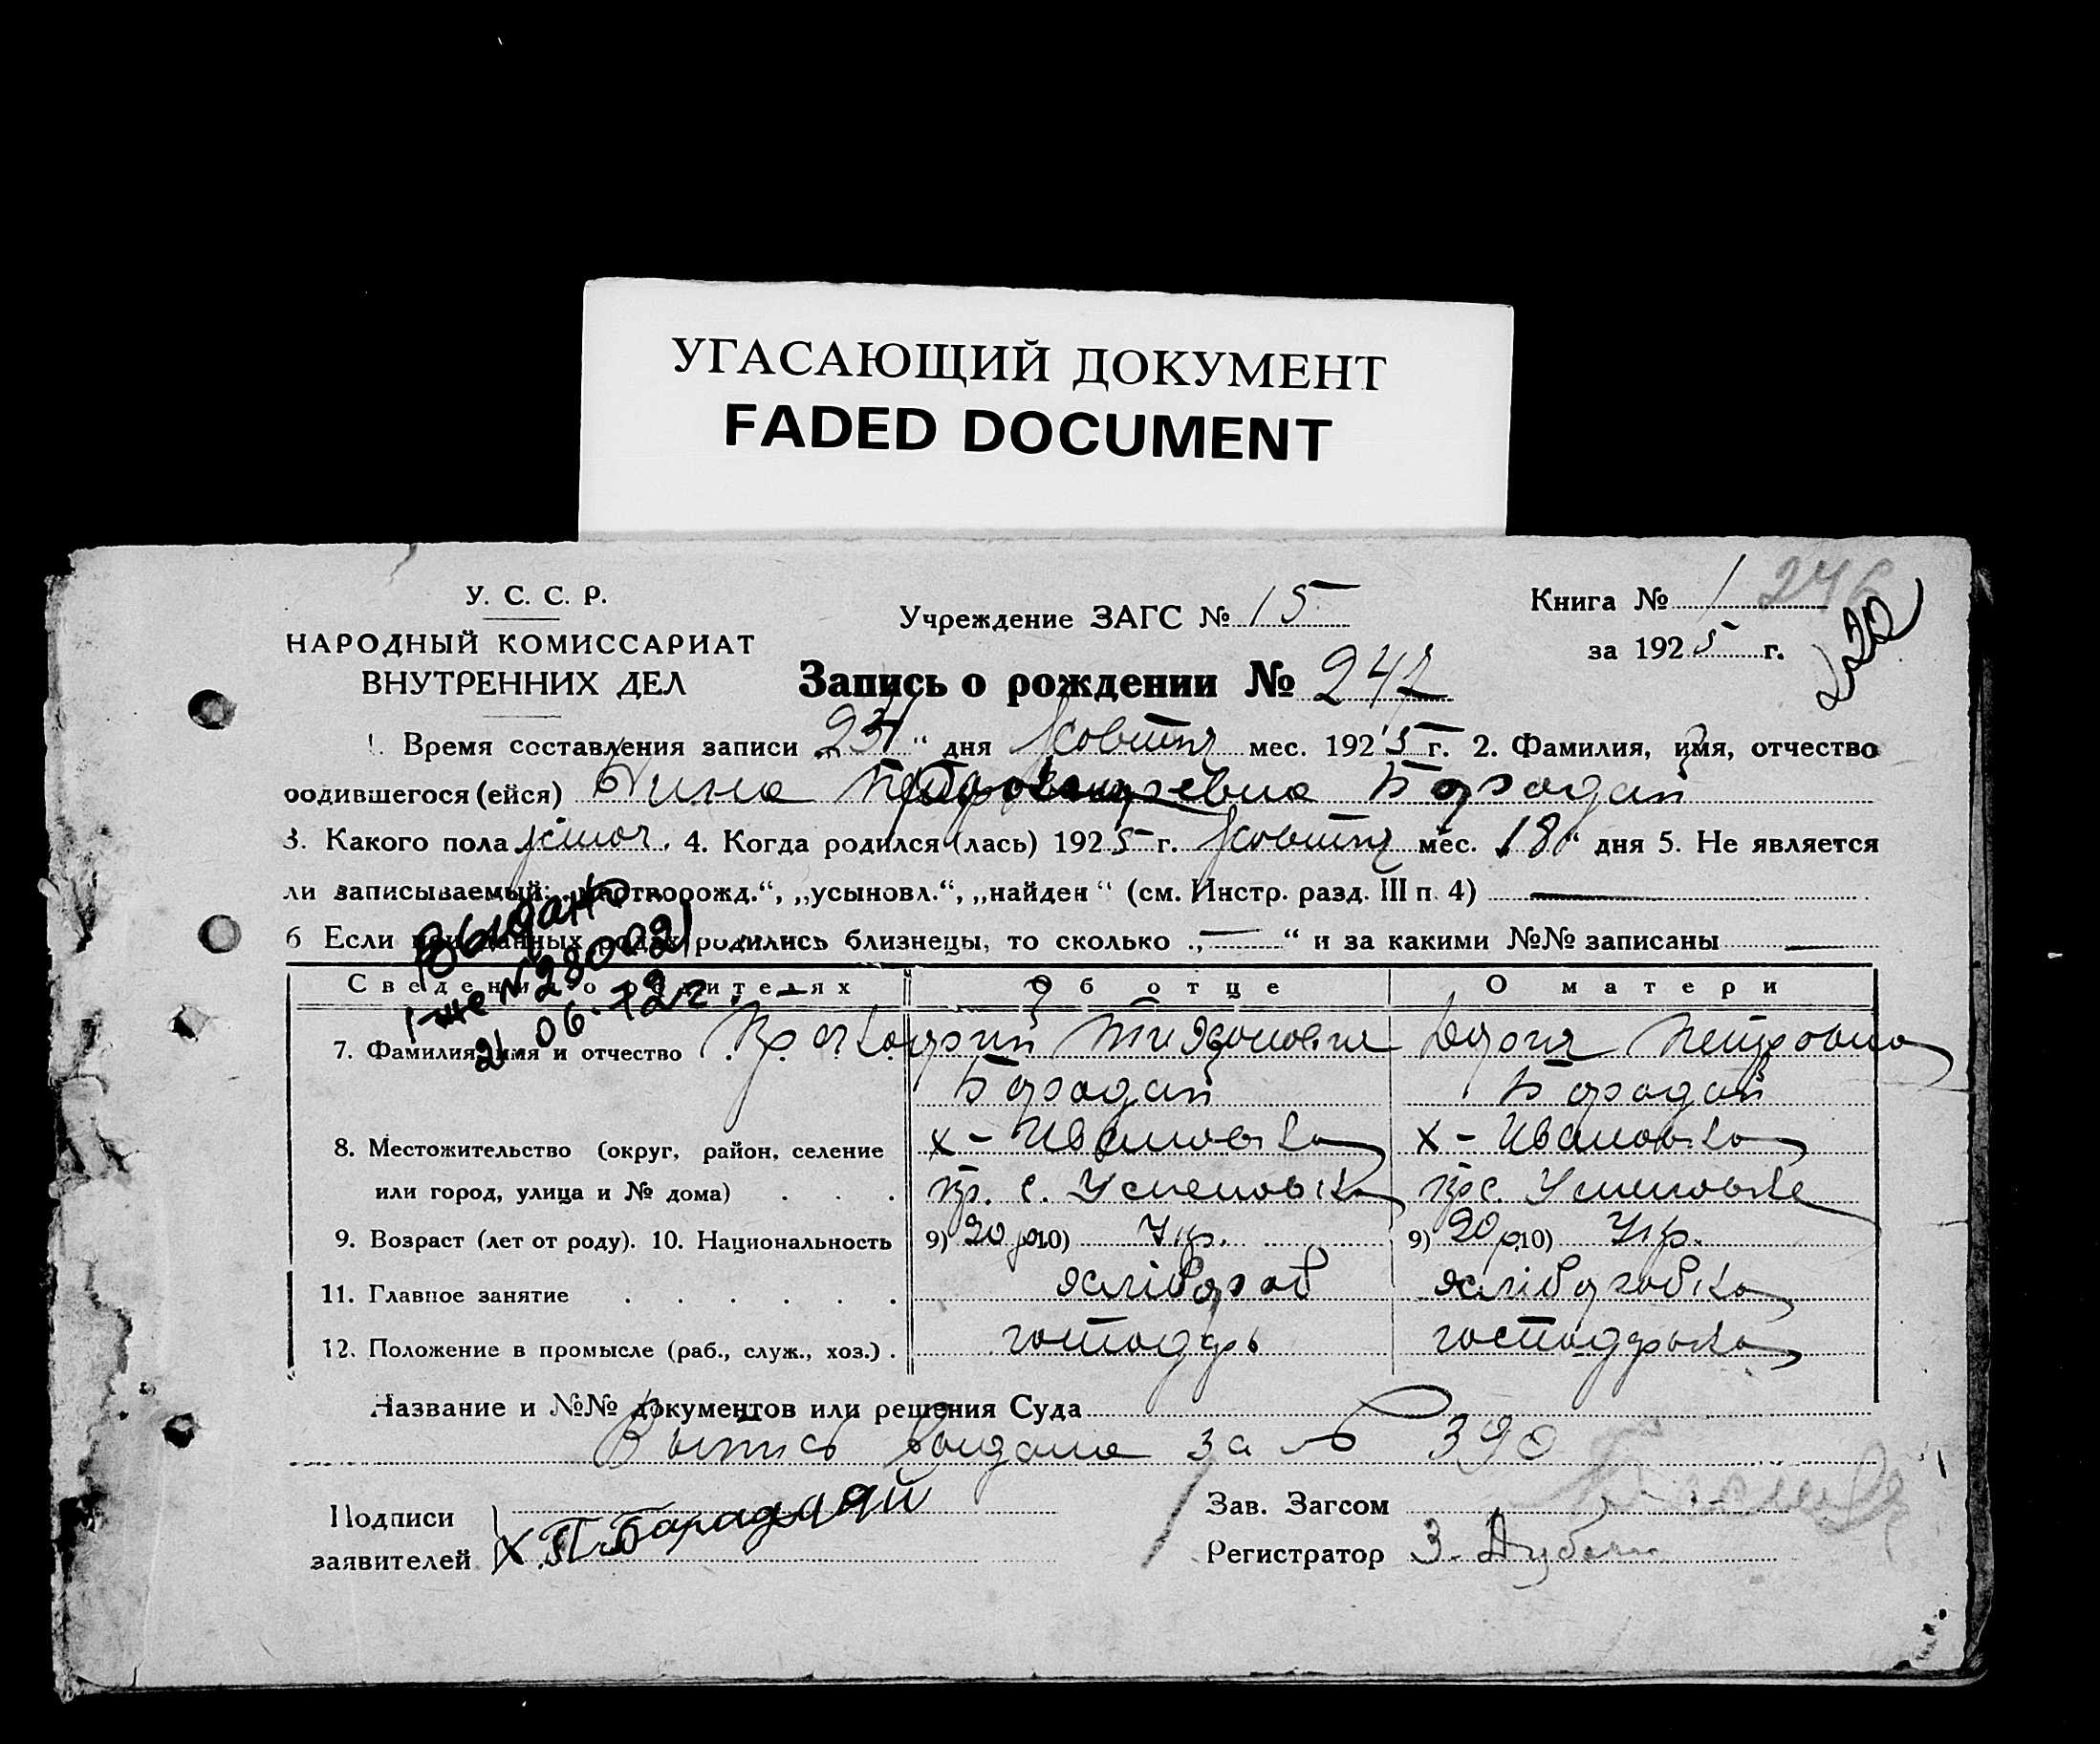 УГАСАЮЩИЙ ДОКУМЕНТ
FADED DOCUMENT
У. С. С. Р.
НАРОДНЫЙ КОМИССАРИАТ
ВНУТРЕННИХ ДЕЛ
Учреждение ЗАГС № 15
Книга № 1 246
за 1925 г.
220
Запись о рождении № 247
1. Время составления записи „23“ дня Жовтня мес. 1925 г. 2. Фамилия, имя, отчество
родившегося (ейся) Нина Бородай
3. Какого пола жіноч. 4. Когда родился (лась) 1925 г. Жовтня мес. 18“ дня 5. Не является
ли записываемый: „мертворожд.“, „усыновл.“, „найден“ (см. Инстр. разд. III п. 4) —
6 Если при данных родах родились близнецы, то сколько „—“ и за какими №№ записаны —
Выдано
21.06.72г.
Сведения о родителях Об отце О матери
7. Фамилия, имя и отчество Тихонович Дария Петровна
Бородай Бородай
8. Местожительство (округ, район, селение х - Ивановка х - Ивановка
или город, улица и № дома) . . . с. Успеновка
9. Возраст (лет от роду). 10. Национальность 9) 20 10) Укр. 9) 20 10) Укр.
11. Главное занятие . . . . . . хлібороб хліборобка
12. Положение в промысле (раб., служ., хоз.) . господарь господарька
Название и №№ документов или решения Суда
Выпись выдана за № 390
Подписи
заявителей х П. Барадай
Зав. Загсом
Регистратор З.